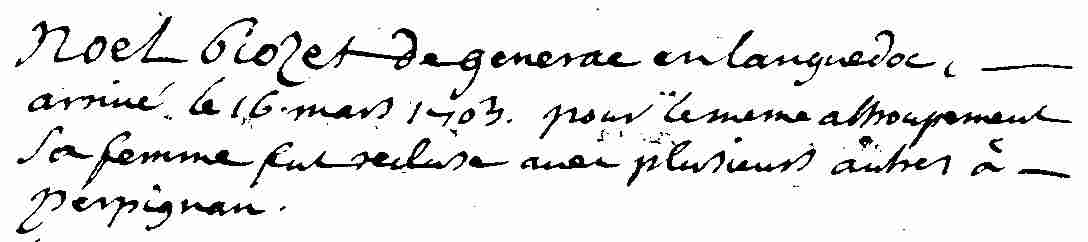 Noel Grozet de generac en languedoc,
arrivé le 16. mars 1703. pour le meme attroupement
Sa femme fut recluse avec plusieurs autres à
perpignan.